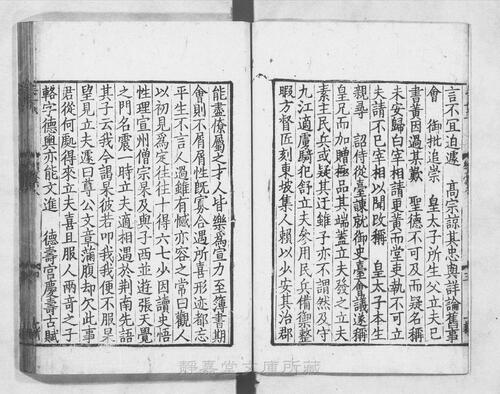 言不宜迫遽　高宗諒其忠與詳論舊事
會　御批追崇　皇太子所生父立夫已
書黃因過其歎　聖德不可及而疑名稱
未安歸白宰相請更黃而堂吏執不可立
夫請不已宰相以聞改稱　皇太子本生
親尋　詔侍從臺諫就御史臺會議遂稱
皇兄而加贈極品其端蓋立夫發之立夫
素主民兵或疑其迂雖子亦不謂然及守
九江適虜騎犯舒立夫參用民兵備禦整
暇方督匠刻東坡集人賴以少安其治郡
能盡僚屬之才人皆樂為宣力至簿書期
會則不屑屑性旣寡合遇所喜形迹都忘
平生不言人過雖有憾亦容之常曰觀人
以初見為定往往十得六七少因讀史悟
性理宣州僧宗杲及與子西並遊張天覺
之門名震一時立夫適相遇於荆南先語
其子云我今謁杲彼若叩我我便不服杲
望見立夫遽曰尊公文章滿腹却欠此事
君從何處得來立夫喜且服人兩奇之子
輅字德輿亦能文進　德壽宮慶壽古賦
靜嘉堂文庫所藏